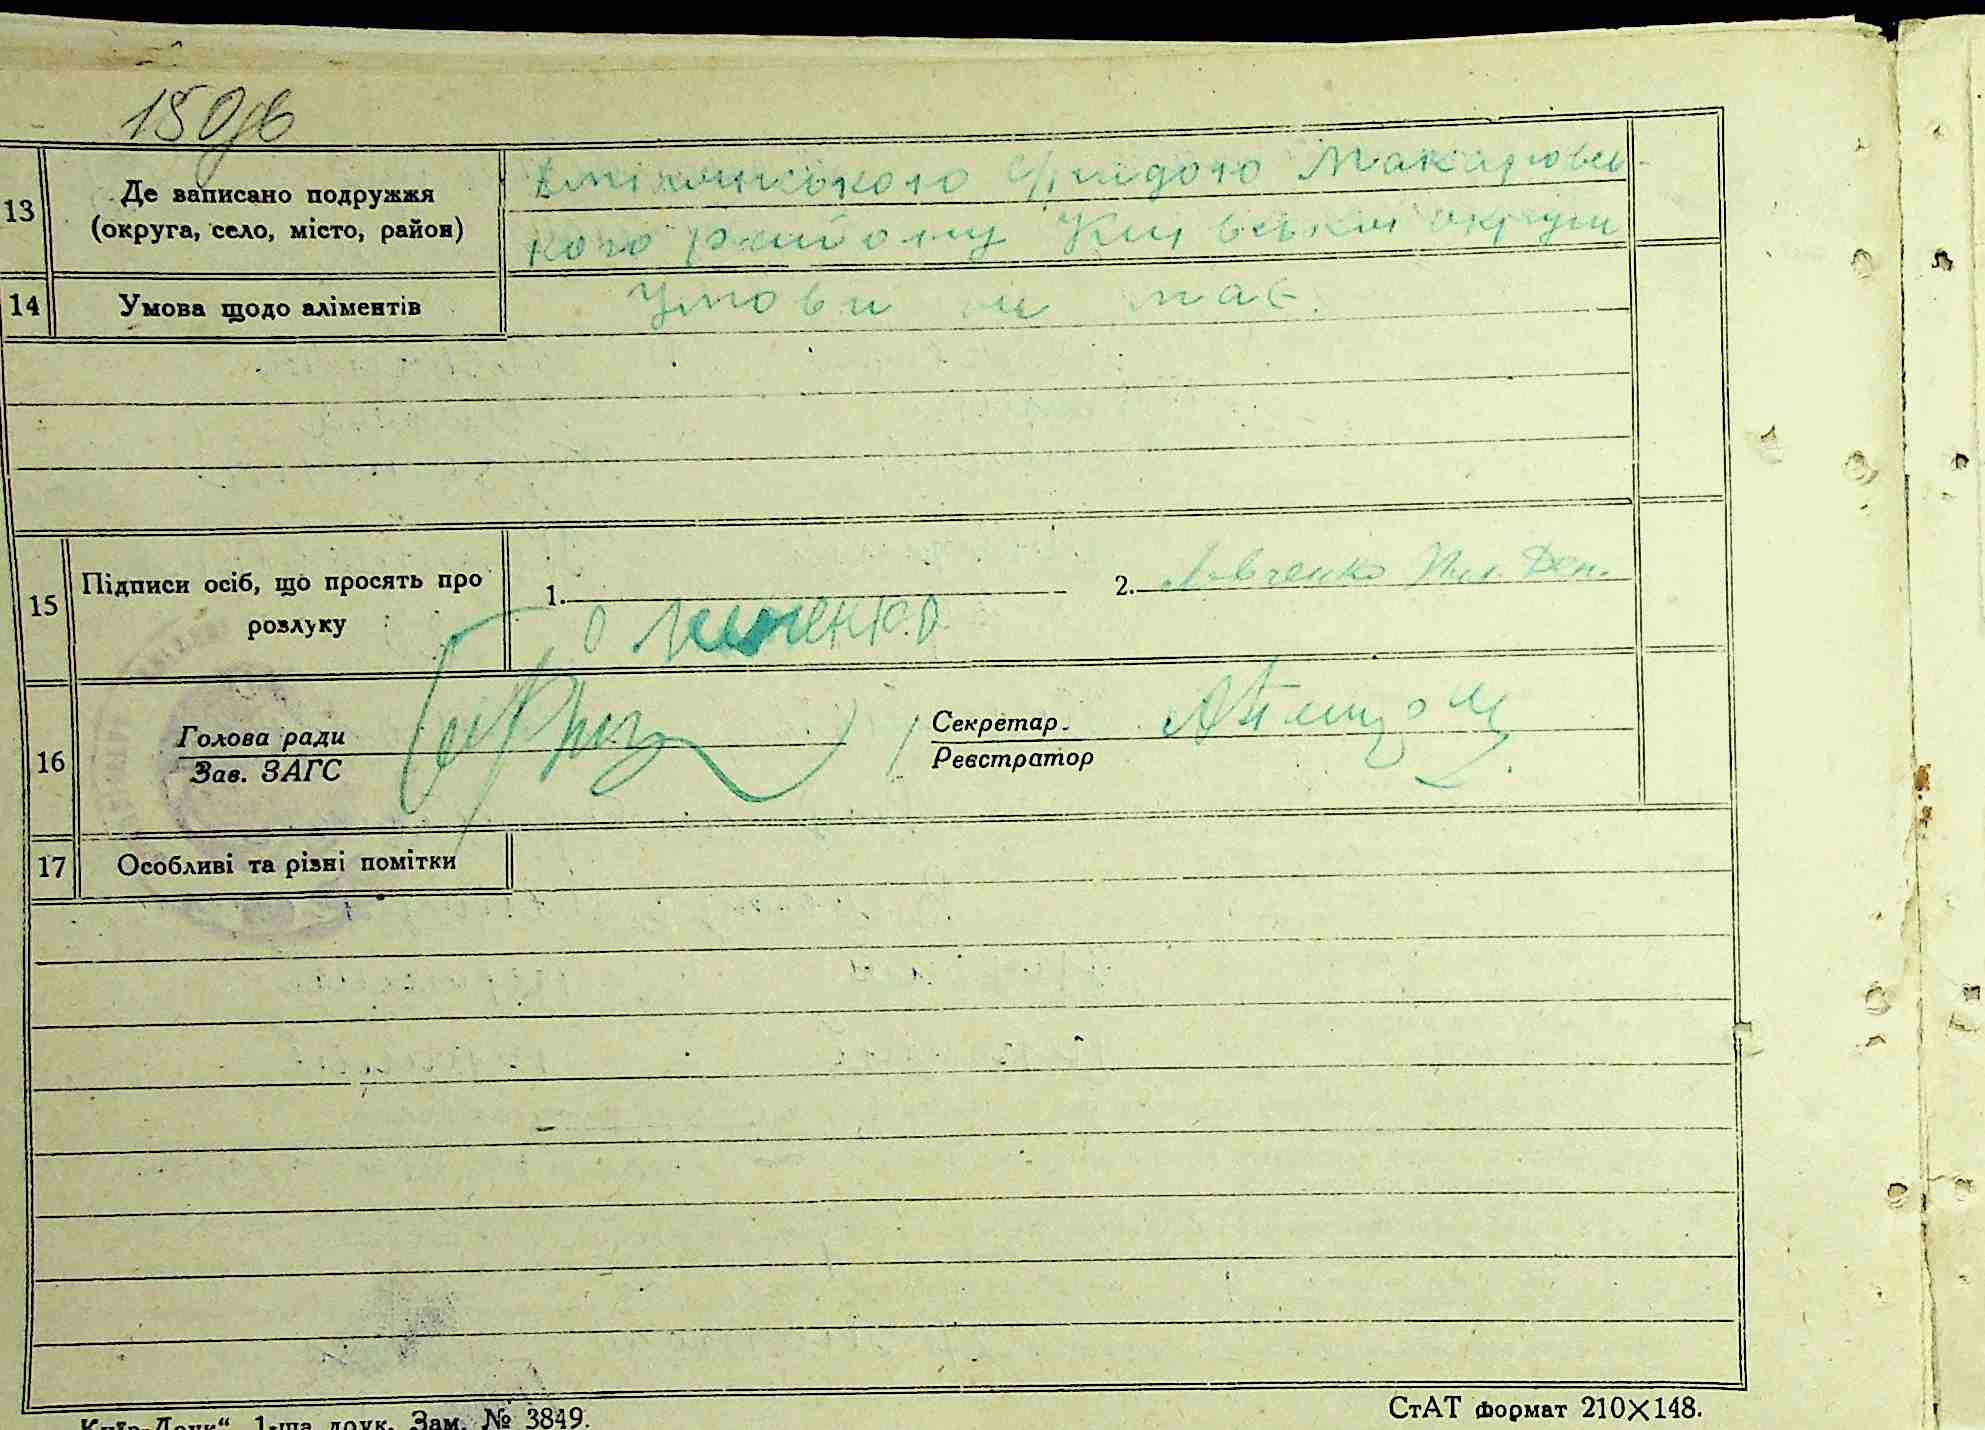 150зв
13
Де записано подружжя
(округа, село, місто, район)
сільрадою Макарівсь-
кого району Київської округи
14
Умова щодо аліментів
Умови не має.
15
Підписи осіб, що просять про
розлуку
1.
2. Левченко Дон.
16
Голова ради
Зав. ЗАГС
Секретар
Реєстратор
17
Особливі та різні помітки
Київ-Друк“ 1-ша друк. Зам. № 3849.
СтАТ формат 210×148.